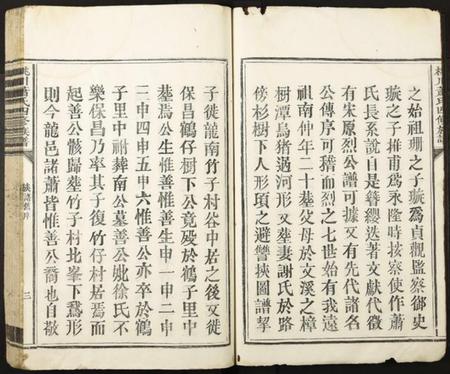 之始祖珊之子旒爲貞觀監察御史
旒之子推甫爲永隆時按察使作蕭
氏長系說自是簪纓迭著文獻代徵
有宋原烈公譜可據又有先代諸名
公傳序可稽而烈之七世始有我遠
祖南仲年二十塟父母於文溪之樟
樹潭烏猪過河形又塟妻謝氏於路
傍杉樹下人形項之避讐挾圖譜挈
子徙龍南竹子村谷中居之後又徙
保昌鶴仔樹下公竟殁於鶴子里中
塟焉公生惟善惟善生申一申二申
三申四申五申六惟善公亦卒於鶴
子里中祔葬南公墓善公妣徐氏不
樂保昌乃率其子復竹仔村居焉而
起善公骸歸塟竹子村北峯下鵞形
則今龍邑諸蕭皆惟善公裔也自敬
族譜舊序
三